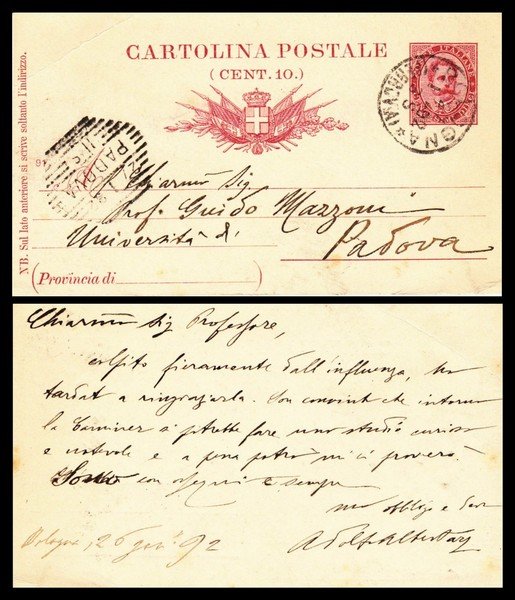 CARTOLINA POSTALE
(CENT. 10.)
NB. Sul lato anteriore si scrive soltanto l'indirizzo.
PADOVA
Chiarm̃ Sig
Prof. Guido Mazzoni
Università di
Padova
(Provincia di
Chiarm̃ Sig Professore,
colpito fieramente dall'influenza, ho
tardat a ringraziarla. Son convint che intorno
la si potrebbe fare uno studio curioso
e notevole e a pena potrò mi ci proverò.
Sono con ossequi e sempre
suo obbligo e dev
Bologna, 26 gen° 92